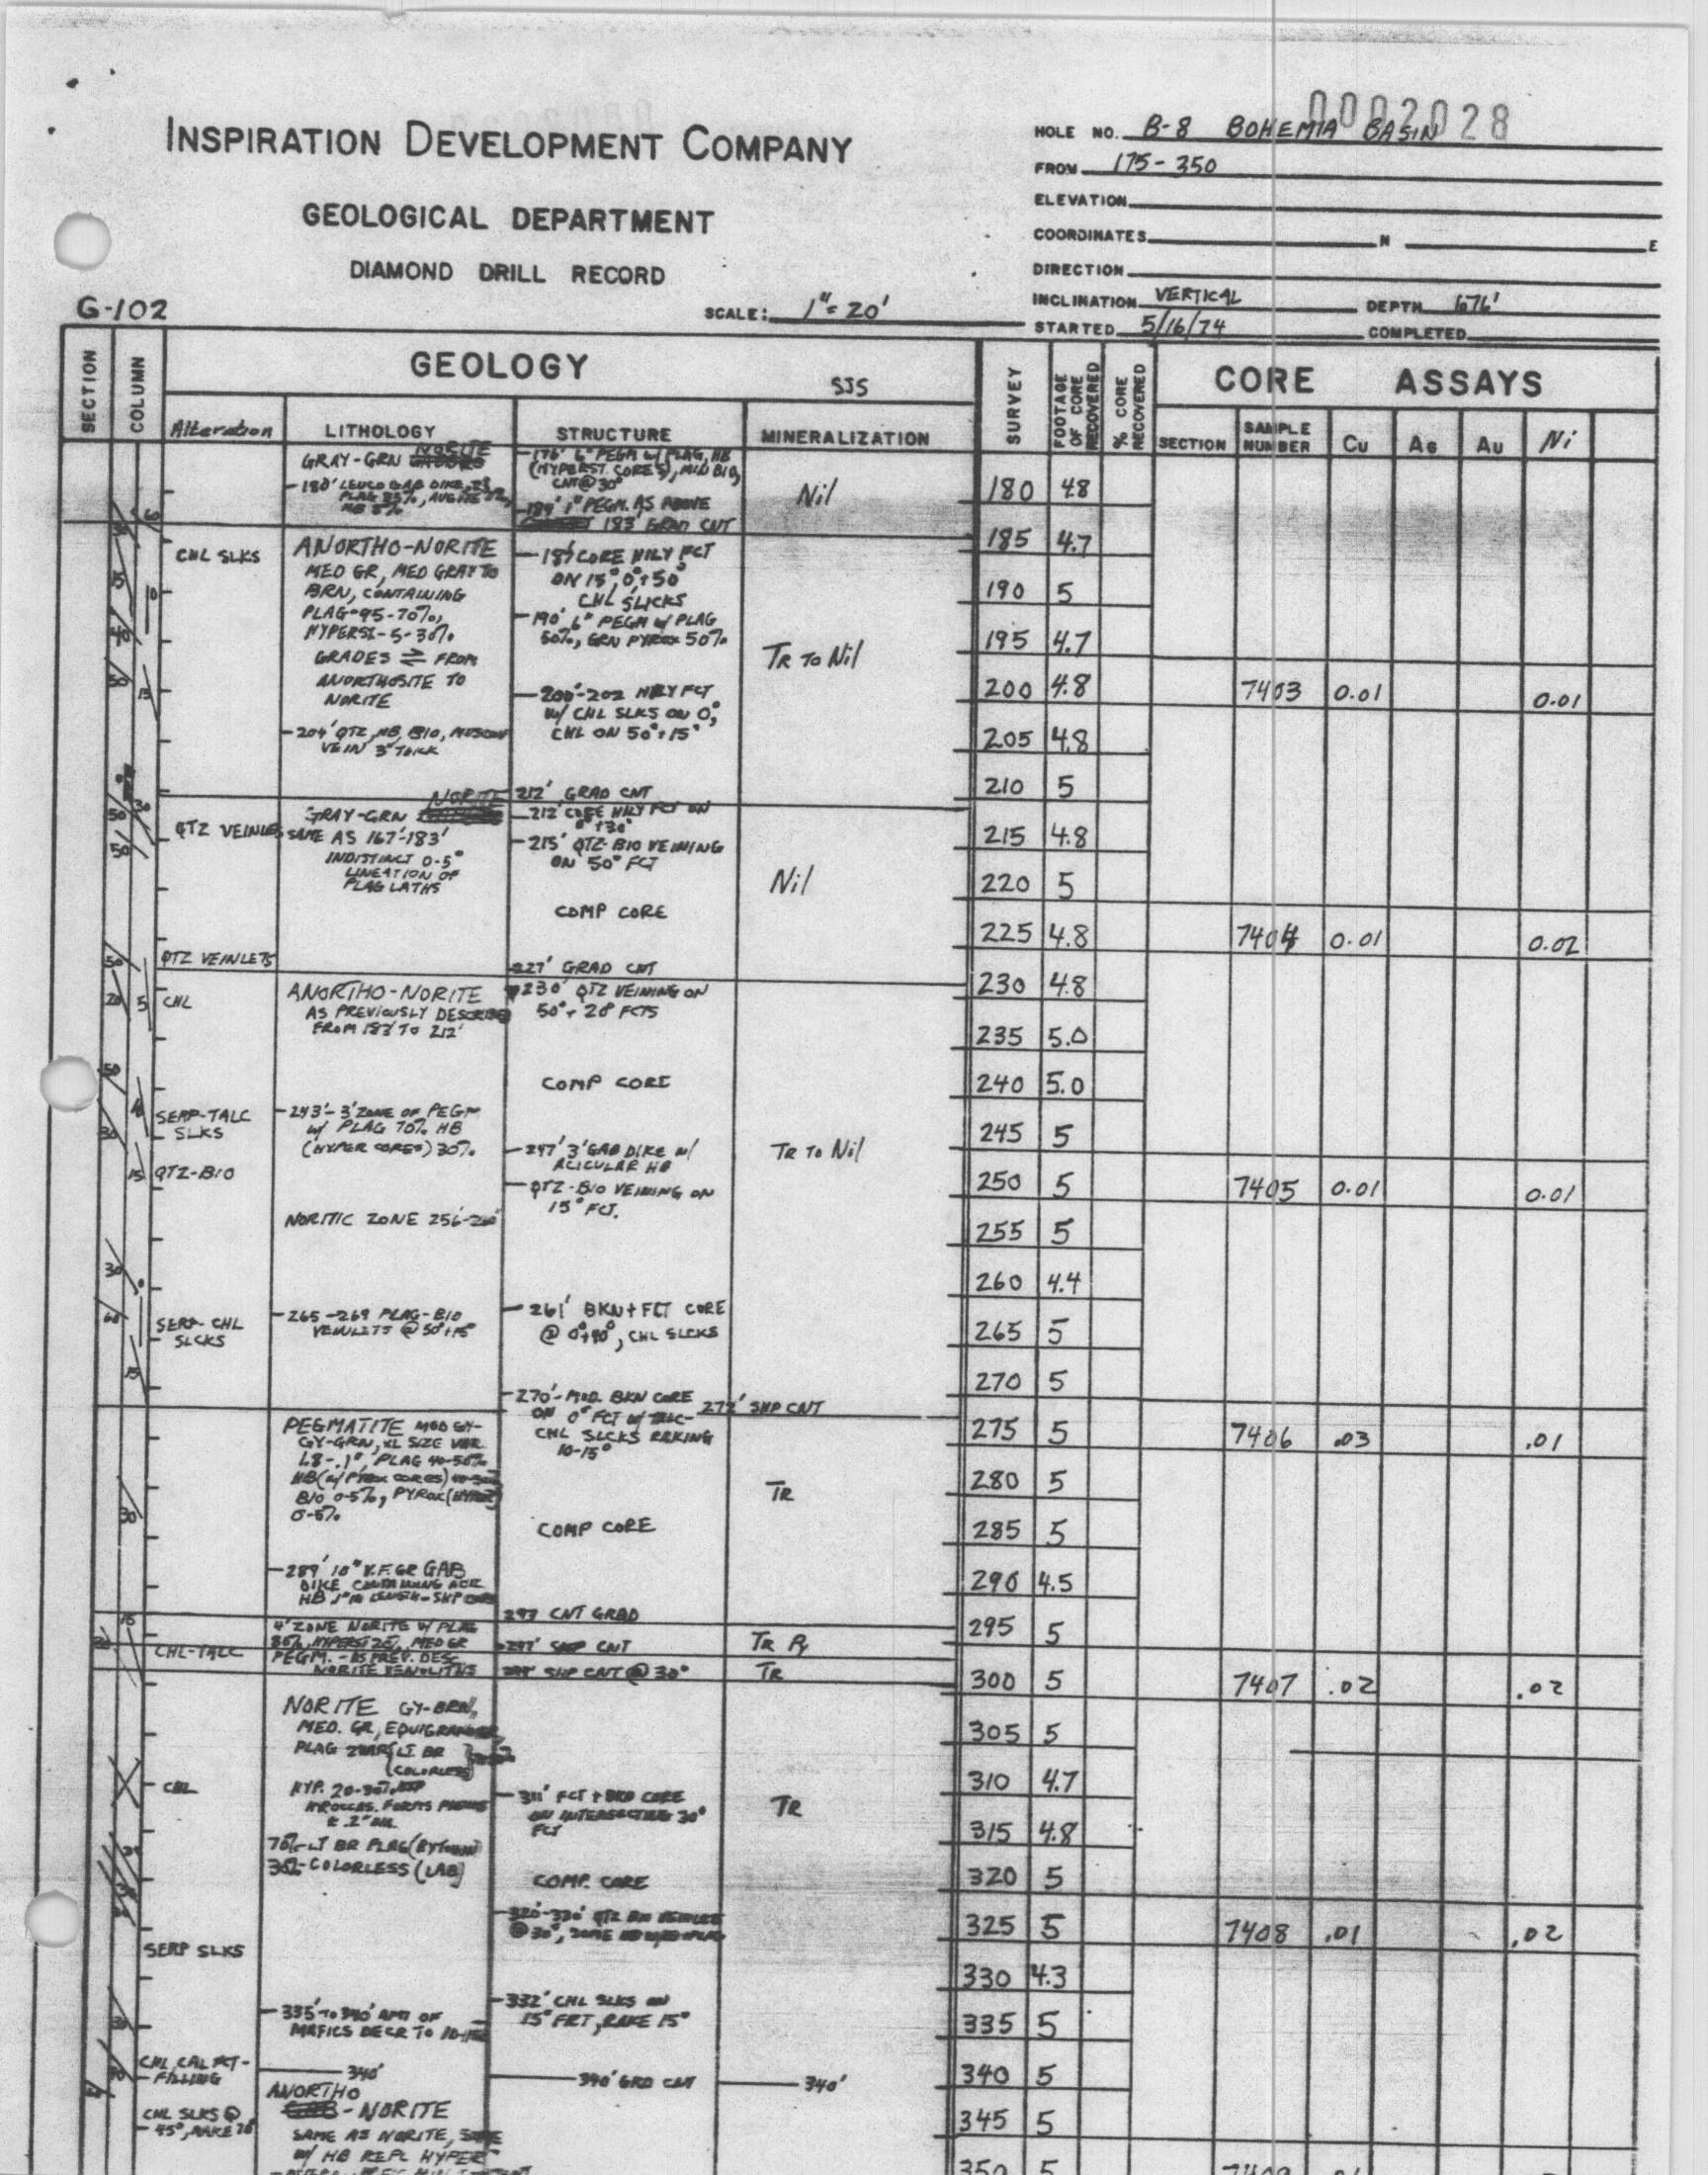 0002028
INSPIRATION DEVELOPMENT COMPANY
GEOLOGICAL DEPARTMENT
DIAMOND DRILL RECORD
G-102
SCALE: 1"= 20'
HOLE NO. B-8 BOHEMIA BASIN
FROM 175-350
ELEVATION
COORDINATES N E
DIRECTION
INCLINATION VERTICAL DEPTH 676'
STARTED 5/16/74 COMPLETED
SECTION
COLUMN
GEOLOGY
SJS
SURVEY
FOOTAGE OF CORE RECOVERED
% CORE RECOVERED
CORE ASSAYS
Alteration LITHOLOGY STRUCTURE MINERALIZATION
SECTION SAMPLE NUMBER Cu Ag Au Ni
CHL SLKS
QTZ VEINLETS
QTZ VEINLETS
CHL
SERP-TALC
SLKS
QTZ-BIO
SERP-CHL
SLCKS
CHL-TALC
CHL
SERP SLKS
CHL, CAL FCT-
FILLING
CHL SLKS @
45°, RAKE 20°
GRAY-GRN NORITE
ANORTHO-NORITE
MED GR, MED GRAY TO
BRN, CONTAINING
PLAG-95-70%,
HYPERST-5-30%
GRADES ⇌ FROM
ANORTHOSITE TO
NORITE
-204' QTZ, HB, BIO,
VEIN 3" THICK
GRAY-GRN NORITE
SAME AS 167'-183'
INDISTINCT 0-5°
LINEATION OF
PLAG LATHS
ANORTHO-NORITE
AS PREVIOUSLY DESCRIBED
FROM 183' TO 212'
-243'-3' ZONE OF PEGM
W/ PLAG 70% HB
(HYPER CORES) 30%
NORITIC ZONE 256'-260'
-265-269 PLAG-BIO
VEINLETS @ 50°+15°
PEGMATITE MED GY-
GY-GRN, XL SIZE VAR.
1.8-.1", PLAG 40-50%
HB (W/ PYROX CORES)
BIO 0-5%, PYROX (HYPER)
0-5%
-289' 10" V.F. GR GAB
DIKE CONTAINING ACIC
4' ZONE NORITE W/ PLAG
PEGM. - AS PREV. DESC
NORITE XENOLITHS
NORITE GY-BRN,
MED. GR, EQUIGRANULAR
PLAG LT BR
(COLORLESS)
HYP. 20-30%
70%-LT BR PLAG (BYTOWN)
30%-COLORLESS (LAB)
-335' TO 340' AMT OF
MAFICS DECR TO 10-15%
340'
ANORTHO
-NORITE
SAME AS NORITE, SOME
W/ HB REPL HYPER
-176' 6" PEGM W/ PLAG, HB
(HYPERST. CORES), MED BIO,
CNT @ 30°
1" PEGM. AS ABOVE
183' GRAD CNT
-187' CORE HILY FCT
ON 15°, 0°, +50°
CHL SLICKS
-190' 6" PEGM W/ PLAG
50%, GRN PYROX 50%
-200'-202 HILY FCT
W/ CHL SLKS ON 0°,
CHL ON 50°+15°
212' GRAD CNT
-212' CORE HILY FCT ON
0°+30°
-215' QTZ-BIO VEINING
ON 50° FCT
COMP CORE
227' GRAD CNT
230' QTZ VEINING ON
50°+20° FCTS
COMP CORE
-247' 3' GAB DIKE W/
ACICULAR HB
-QTZ-BIO VEINING ON
15° FCT.
-261' BKN + FCT CORE
@ 0°+40°, CHL SLCKS
-270'-MOD. BKN CORE
ON 0° FCT W/ TALC-
CHL SLCKS RAKING
10-15°
272' SHP CNT
COMP CORE
293 CNT GRAD
297' SHP CNT
SHP CNT @ 30°
-311' FCT + BKD CORE
ON INTERSECTING 30°
FCT
COMP. CORE
-320'-330' QTZ BIO VEINLETS
-332' CHL SLKS ON
15° FRT, RAKE 15°
340' GRD CNT
Nil
TR TO Nil
Nil
TR TO Nil
TR
TR Py
TR
TR
340'
180 4.8
185 4.7
190 5
195 4.7
200 4.8 7403 0.01 0.01
205 4.8
210 5
215 4.8
220 5
225 4.8 7404 0.01 0.02
230 4.8
235 5.0
240 5.0
245 5
250 5 7405 0.01 0.01
255 5
260 4.4
265 5
270 5
275 5 7406 .03 .01
280 5
285 5
290 4.5
295 5
300 5 7407 .02 .02
305 5
310 4.7
315 4.8
320 5
325 5 7408 .01 .02
330 4.3
335 5
340 5
345 5
350 5